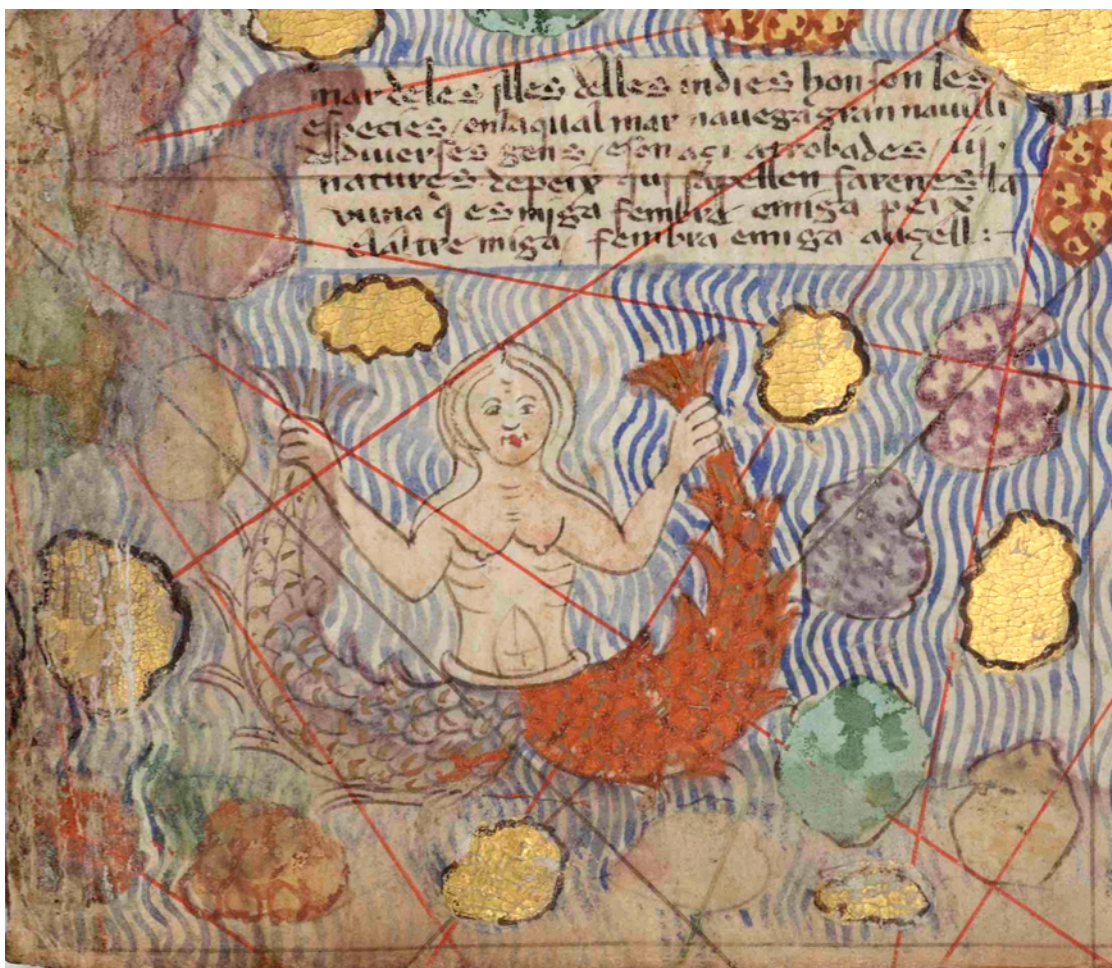 mar deles jlles delles indies hon son les
especies / en la qual mar nauega gran nauili
de diuerses gens / e son açi atrobades / iij ·
natures de peix qui sapellen sarenes la
vuna q̃ es miga fembre emiga peix
elaltre miga / fembra emiga auçell :